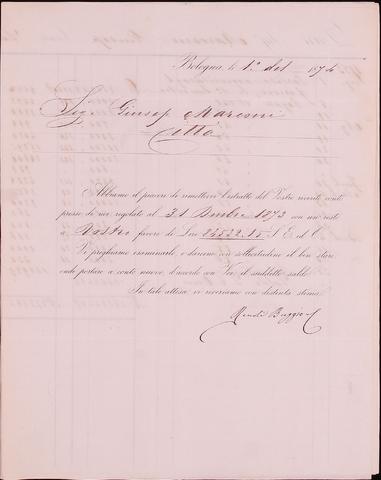 Bologna, li 1º del 1874
Sig. Giusep Maresmi
Città
Abbiamo il piacere di rimettervi l'estratto del Vostro riverito conto
presso di noi regolato al 31 Dmbre 1873 con un resto
a Nostro favore di Lire 24522.15 S. E. ed O.
Vi preghiamo esaminarlo, e darcene con sollecitudine il ben stare
onde portare a conto nuovo, d'accordo con Voi il suddetto saldo.
In tale attesa, vi riveriamo con distinta stima